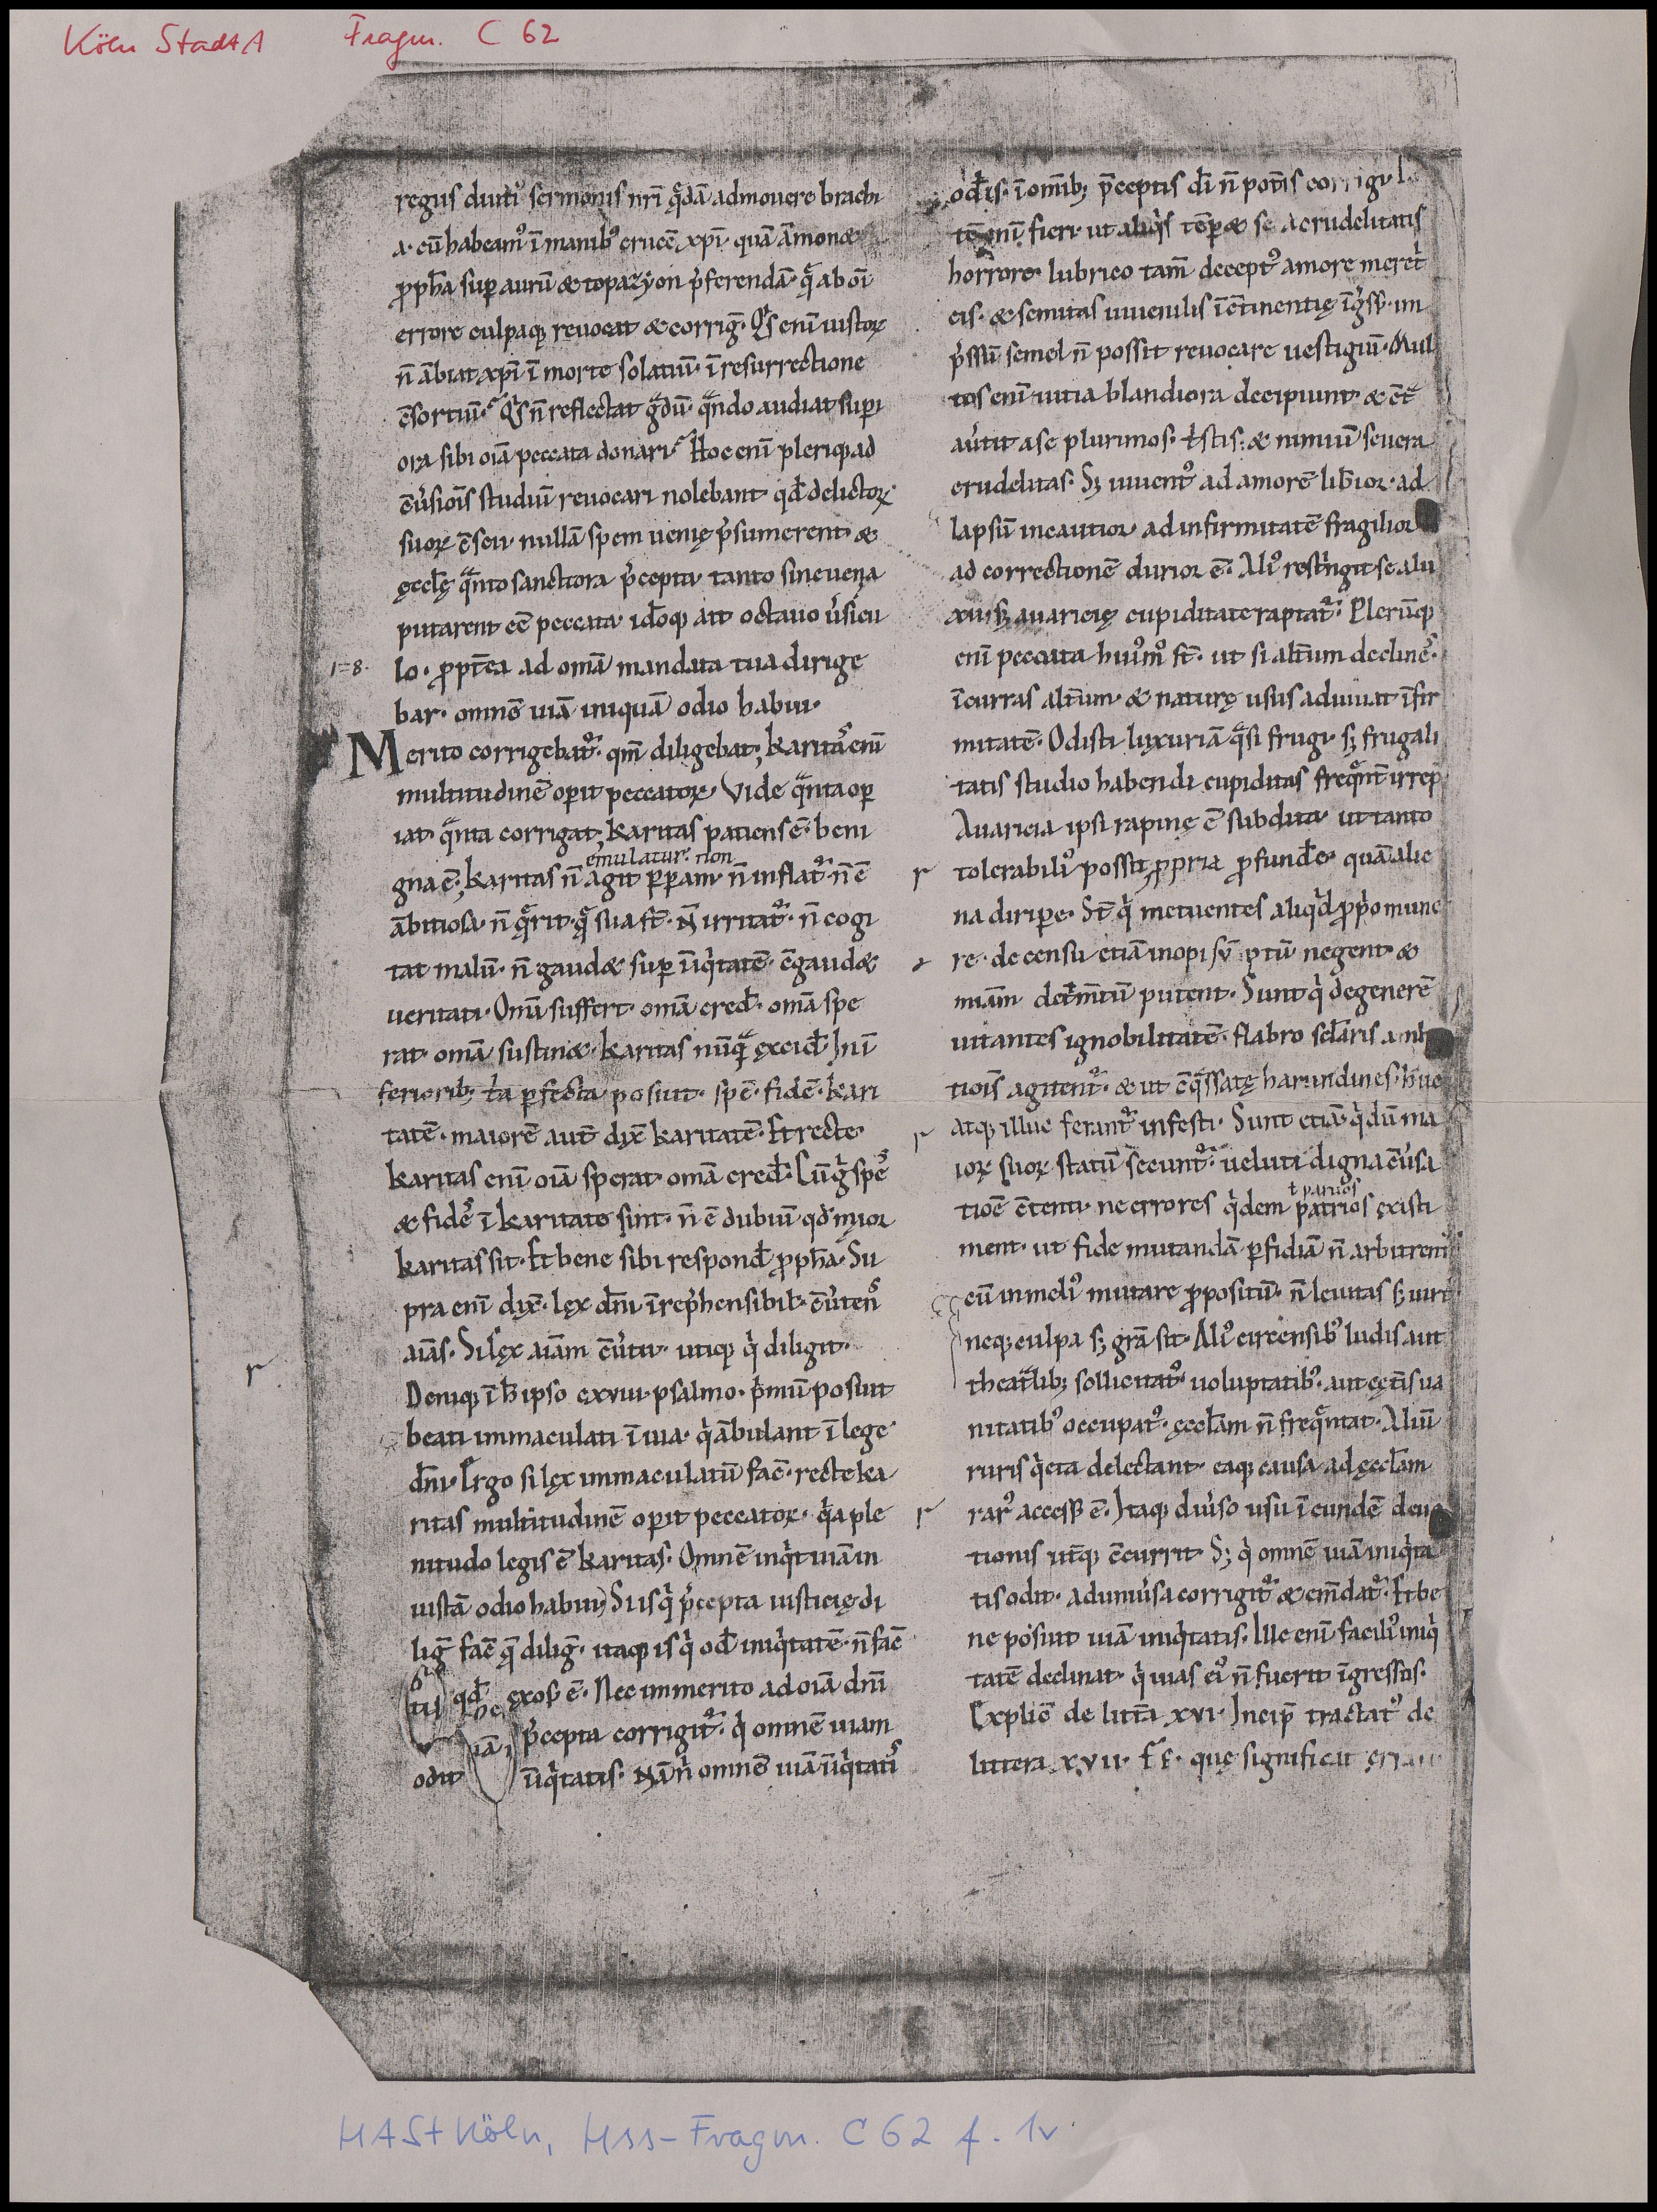 Köln StadtA Fragm. C 62
regus diuiti sermonis nr̄i q̄dā admouere brachi
a· cū habeam᷒ ī manib᷒ crucē xp̄i· quā ām̄on&
ꝓph̄a sup aurū & topazyon p̄ferendā· q̄ ab om̄i
errore culpaq; reuocat & corriḡ· Q͛s enī iustoꝝ
n̄ ābiat xp̄i ī morte solatiū· ī resurrectione
c̄sortiū· Q͛s n̄ reflectat g̃dū· q̃ndo audiat supi
ora sibi oīa peccata donari· Hoc enī pleriq; ad
c̄ūsiōis studiū reuocari nolebant qd̄ delictoꝝ
suoꝝ c̄scii· nullā spem uenię p̄sumerent· &
ęccłę q̃nto sanctiora p̄cepta· tanto sine uenia
putarent eē̄ peccata· idōq; ait octauo ūsicu
1=8· lo· ꝓpt̄ea ad om̄a mandata tua dirige
bar· omnē uiā iniquā odio habui·
Merito corrigebat᷑· qm̄ diligebat; Karitas enī
multitudinē opit peccatoꝝ· Vide q̃nta op
iat· q̃nta corrigat; Karitas patiens ē· beni
emulatur· non
gna ē; Karitas n̄ agit ꝑꝑam· n̄ inflat᷑· n̄ ē
ābitiosa· n̄ q̄rit· q̄ sua s̄t· N̄ irritat᷑· n̄ cogi
tat malū· n̄ gaud& sup īiq͛tatē· c̄gaud&
ueritati· Om̄a suffert· om̄a cred̄· om̄a spe
rat· om̄a sustin&· Karitas nūq̃ excid̄· In ī
feriorib; t̄a ꝑfecta posuit· spē· fidē· kari
tatē· maiorē aut̄ dix̄ karitatē· Et recte·
Karitas enī oīa sperat· om̄a cred̄· Cū g͛ spes
& fides ī karitate sint· n̄ ē dubiū qd̄ maior
karitas sit· Et bene sibi respond̄ ꝓph̄a· Su
pra enī dix̄· lex dn̄i īrep̄hensibil̄· c̄ūtens
aīas· Si lex aīam c̄ūtit· utiq; q͛ diligit·
Deniq; ī h̄ ipso cxviii· psalmo· p͛mū posuit
beati immaculati ī uia· q͛ ābulant ī lege
dn̄i· Ergo si lex immaculatū fac̄· recte ka
ritas multitudinē opit peccatoꝝ· q͛a ple
nitudo legis ē karitas· Omnē inq͛t uiā in
iustā odio habui· Si is q͛ p̄cepta iusticię di
liḡ fac̄ q̄ diliḡ· itaq; is q͛ od̄ iniq͛tatē· n̄ fac̄
qd̄ exos᷒ ē· Nec immerito ad oīa dn̄i
p̄cepta corrigit᷑· q͛ omnē uiam
odit īiq͛tatis· Nā n͛ omnē uiā īiq͛tatis
od̄is· ī om̄ib; p̄ceptis dī n̄ pot̄is corrigi·
horrore· lubrico tam̄ decept᷒ amore meret͛
cis· & semitas iuuenilis īc̄tinentię īg͛ss᷒· im
p͛ssū semel n̄ possit reuocare uestigiū· Mul
tos enī uitia blandiora decipiunt· & c̄t̃
aūtit a se plurimos· t͛stis· & nimiū seuera
crudelitas· S; iuuent᷒ ad amorē lib̄ior· ad
lapsū incautior· ad infirmitatē fragilior
ad correctionē durior ē· Ali᷒ rest͛ngit se a lu
xu· s; auaricię cupiditate raptat᷑· Plerūq;
enī peccata hui᷒mo᷒ s̄t· ut si alt̄um declines·
īcurras alt̄um· & naturę usus adiuuat īfir
mitatē· Odisti luxuriā q̃si frugi· s; frugali
tatis studio habendi cupiditas freq̃nt̄ irrep·
Auaricia ipsi rapinę ē subdita· ut tanto
tolerabili᷒ possit ꝓpria ꝓfund̄e· quā alie
na diripe· St̄ q͛ metuentes aliq͛d ꝓp͛o mune
re· de censu etiā inopi sūptū negent· &
niām det͛m̄tū putent· Sunt q͛ degenerē
uitantes ignobilitatē· flabro sclaris amb
tiōis agitent᷑· & ut c̄q̃ssatę harundines· huc
atq; illuc ferant᷑ infesti· Sunt etiā· q͛ dū ma
ioꝝ suoꝝ statū secunt᷑· ueluti digna c̄ūsa
ł paruos
tiōe c̄tenti· ne errores q͛dem patrios existi
ment· ut fide mutandā ꝑfidiā n̄ arbitrent
cū in meli᷒ mutare ꝓpositū· n̄ leuitas s; uirt
neq; culpa s; gr̄a sit· Ali᷒ circensib᷒ ludis aut
theat̃lib; sollicitat᷒ uoluptatib᷒· aut cęt̄is ua
nitatib᷒ occupat᷒· ęccłam n̄ freq̃ntat· Aliū
ruris q͛eta delectant· eaq; causa ad ęccłam
rar᷒ access᷒ ē· Itaq; diūso usu ī eundē deui
tionis ut̄q; c̄currit· S; q͛ omnē uiā iniq͛ta
tis odit· ad uniūsa corrigit᷑ & em̄dat᷑· Et be
ne posuit uiā iniq͛tatis· Ille enī facili᷒ iniq͛
tatē declinat· q͛ uias ei᷒ n̄ fuerit īgressus·
Explic̄ de litt̄a xvi· Incip̄ tractat᷒ de
littera xvii· FE· quę significat
HAStKöln, Hss-Fragm. C 62 f. 1v